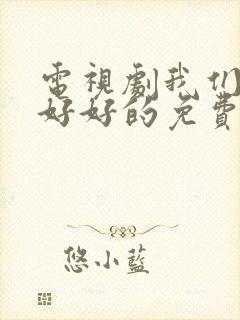 電視劇我们
好好的免費
悠小藍